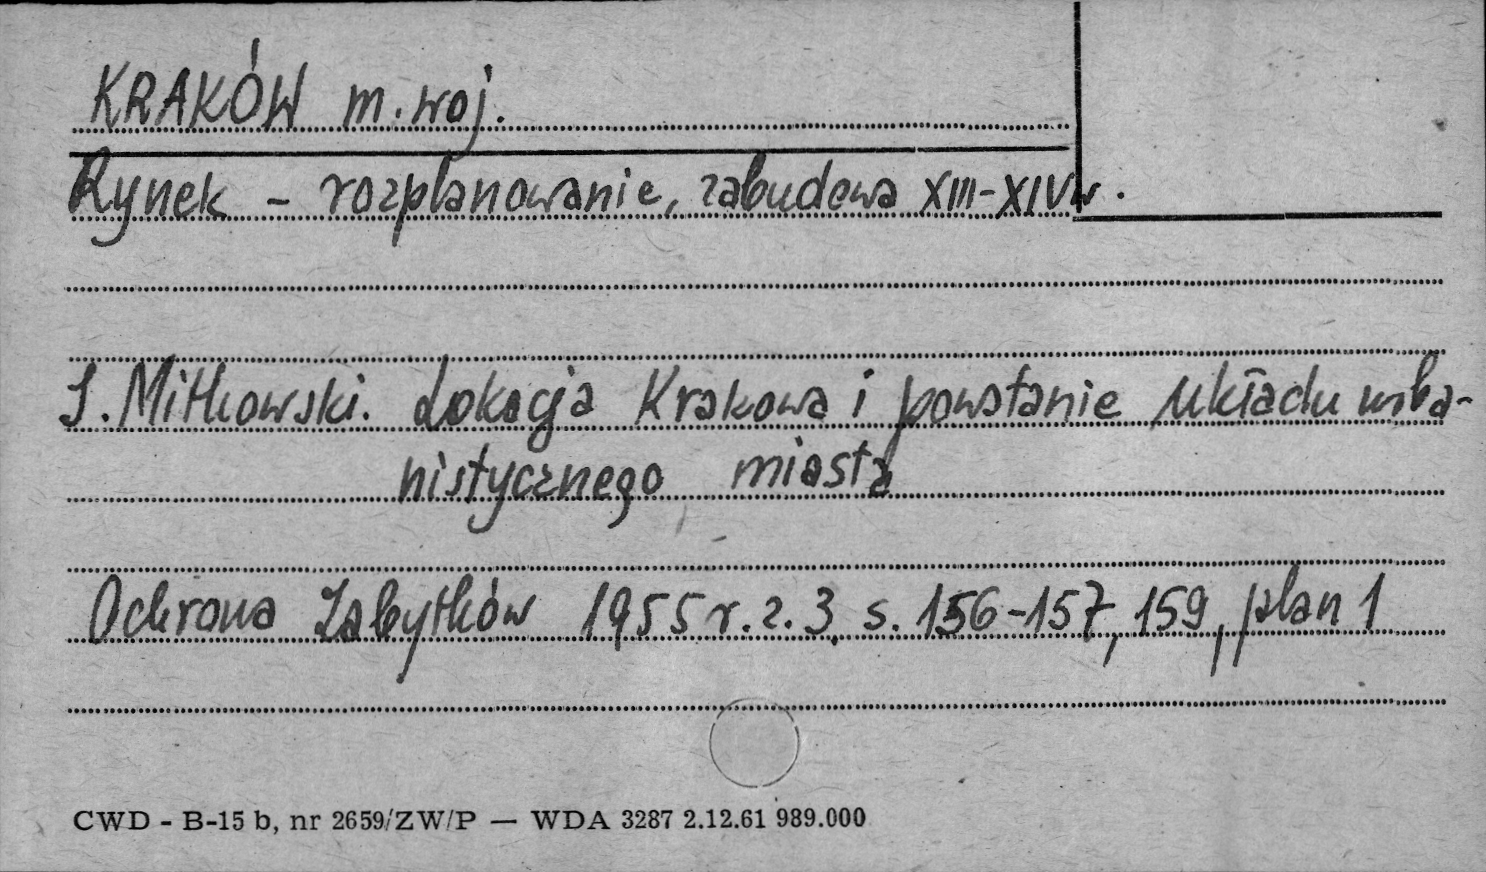 KRAKÓW m. woj.
Rynek - rozplanowanie, zabudowa XIII-XIV w.
J. Mitkowski. Lokacja Krakowa i powstanie układu urba-
nistycznego miasta
Ochrona Zabytków 1955 r. z. 3, s. 156-157, 159, plan 1
CWD - B-15 b, nr 2659/ZW/P — WDA 3287 2.12.61 989.000